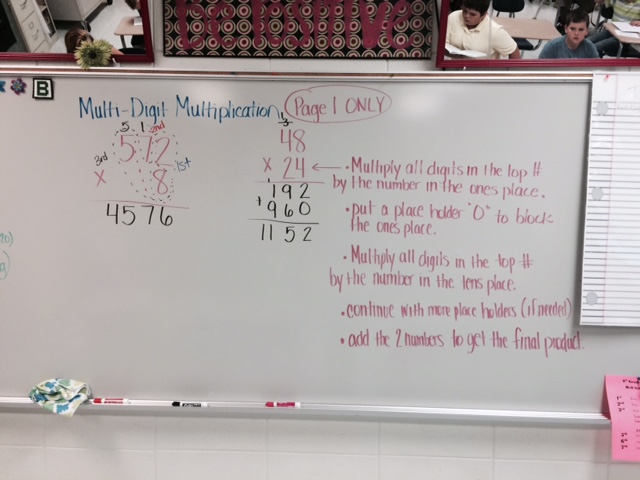 BE POSITIVE
B
Multi-Digit Multiplication
Page 1 ONLY
5 1 2nd
3rd 572 1st
x 8
4576
1
3
48
x 24
1
192
+ 960
1152
• Multiply all digits in the top #
by the number in the ones place.
• put a place holder "0" to block
the ones place.
• Multiply all digits in the top #
by the number in the tens place.
• continue with more place holders (if needed)
• add the 2 numbers to get the final product.